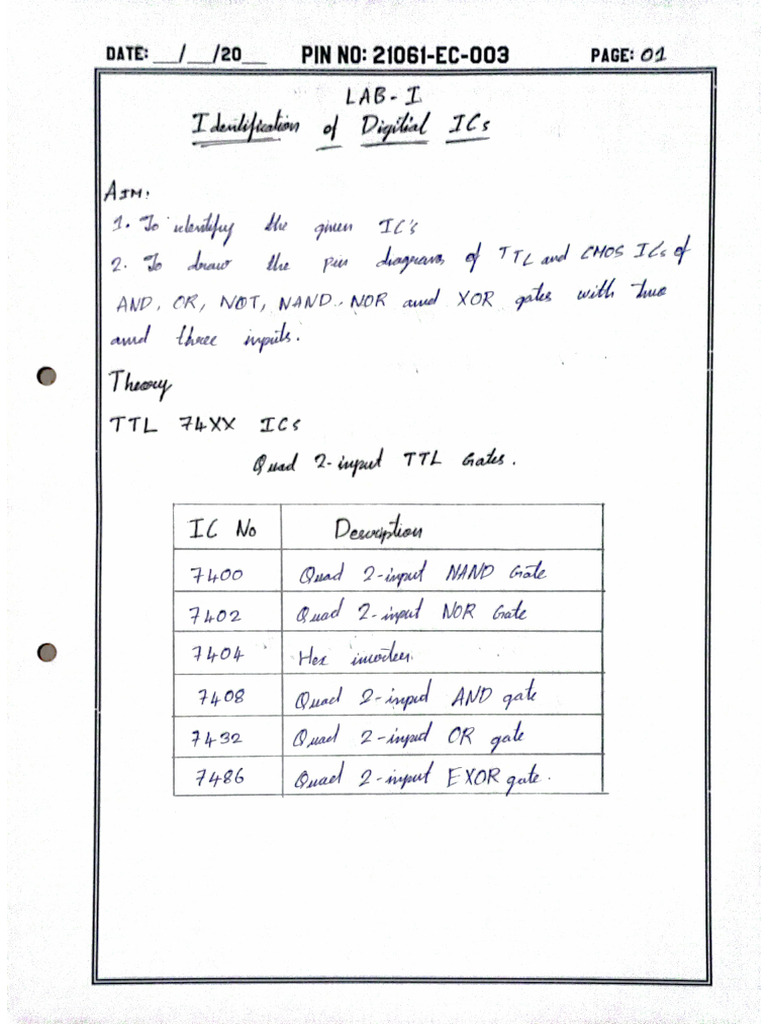 DATE: __/__/20__ PIN NO: 21061-EC-003 PAGE: 01
LAB-I
Identification of Digitial ICs
AIM:
1. To identify the given IC's
2. To draw the pin diagrams of TTL and CMOS ICs of
AND, OR, NOT, NAND, NOR and XOR gates with two
and three inputs.
Theory
TTL 74XX ICs
Quad 2-input TTL Gates.
IC No Description
7400 Quad 2-input NAND Gate
7402 Quad 2-input NOR Gate
7404 Hex inverter.
7408 Quad 2-input AND gate
7432 Quad 2-input OR gate
7486 Quad 2-input EXOR gate.